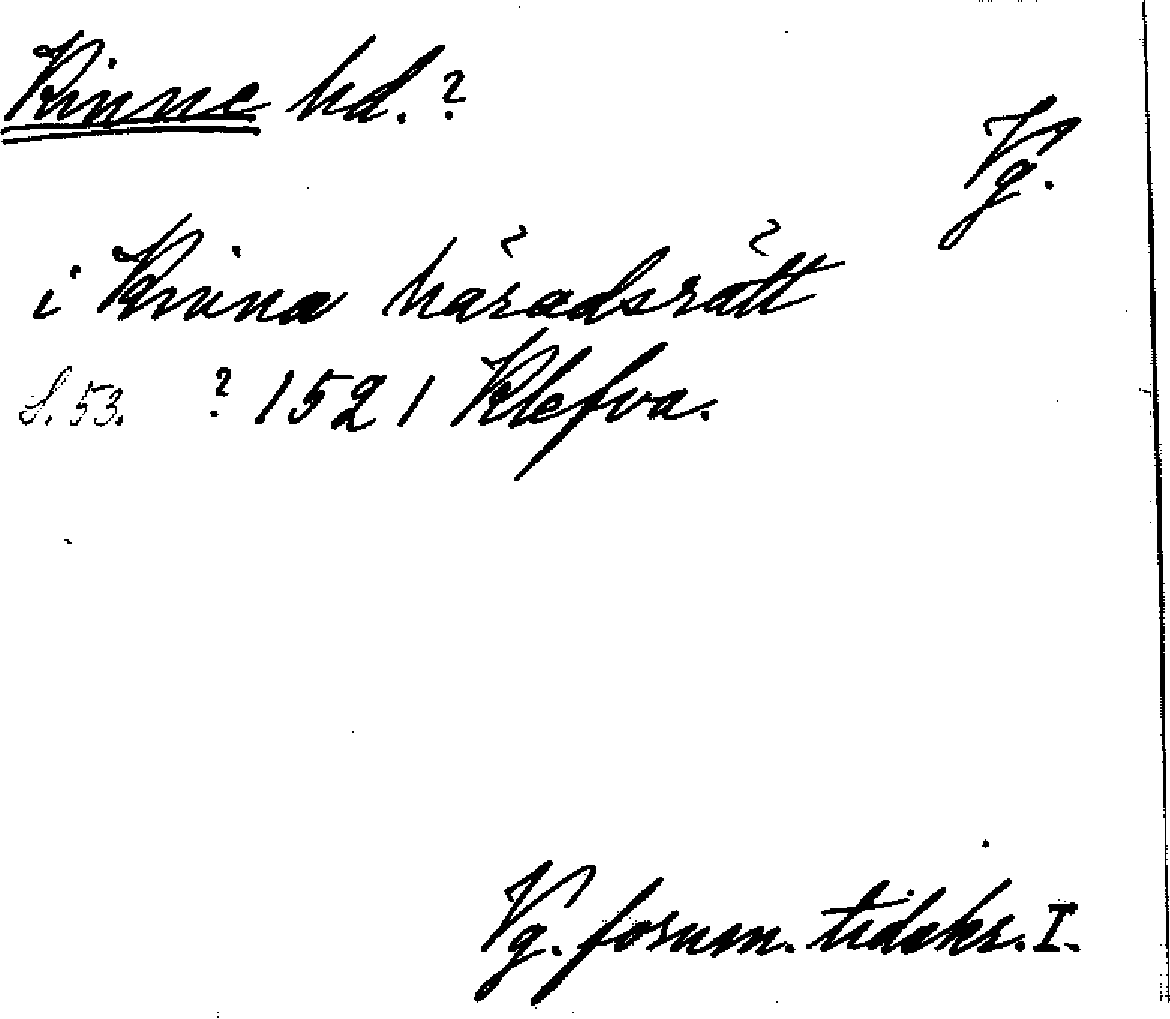 Kinne hd.?
Vg.
i Kinna häradsrätt
S. 53. ? 1521 Klefva.
Vg. fornm. tidskr. I.